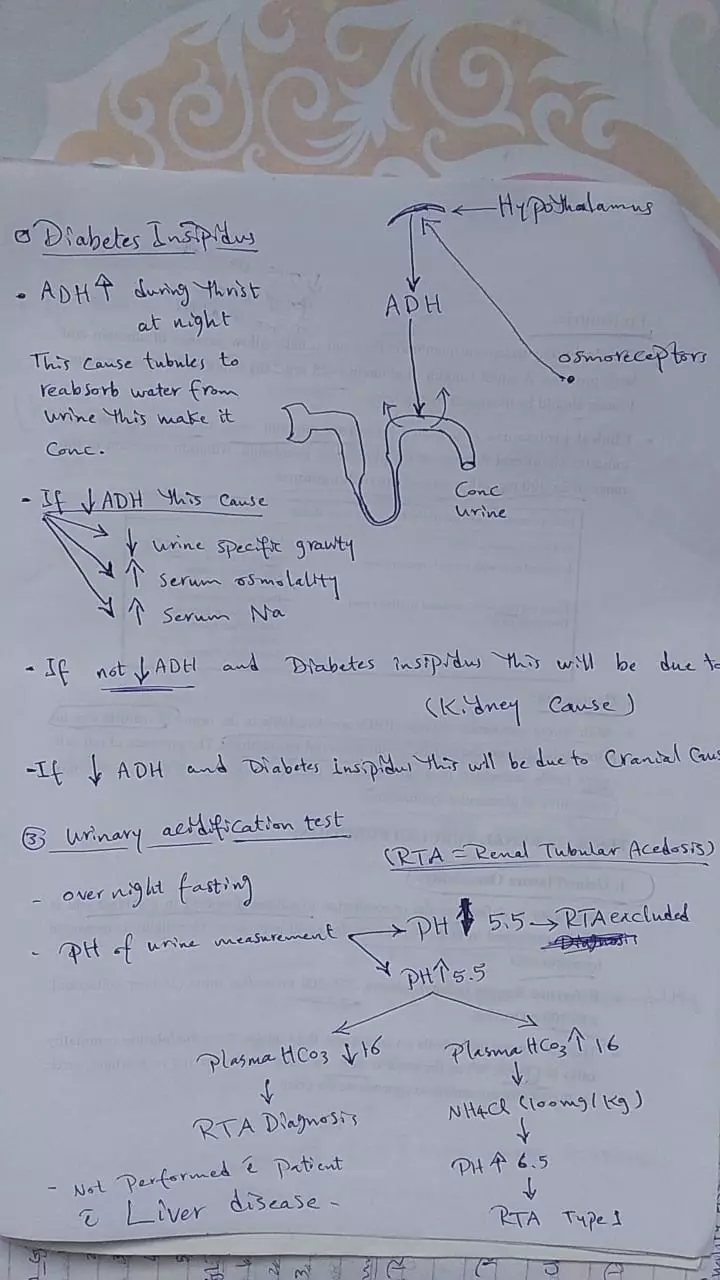 Diabetes Insipidus
Hypothalamus
• ADH ↑ during thrist
at night
ADH
osmoreceptors
This cause tubules to
reabsorb water from
urine this make it
Conc.
Conc
urine
- If ↓ ADH this cause
↓ urine specific gravity
↑ serum osmolality
↑ serum Na
- If not ↓ ADH and Diabetes insipidus this will be due to
(Kidney Cause)
- If ↓ ADH and Diabetes insipidus this will be due to Cranial Caus
③ urinary acidification test
(RTA = Renal Tubular Acedosis)
- over night fasting
- PH of urine measurement → PH ↓ 5.5 → RTA excluded
Diagnosis
PH ↑ 5.5
Plasma HCO3 ↓ 16
Plasma HCO3 ↑ 16
RTA Diagnosis
NH4Cl (100mg/kg)
PH ↑ 6.5
RTA Type 1
- Not Performed c̄ Patient
c̄ Liver disease -